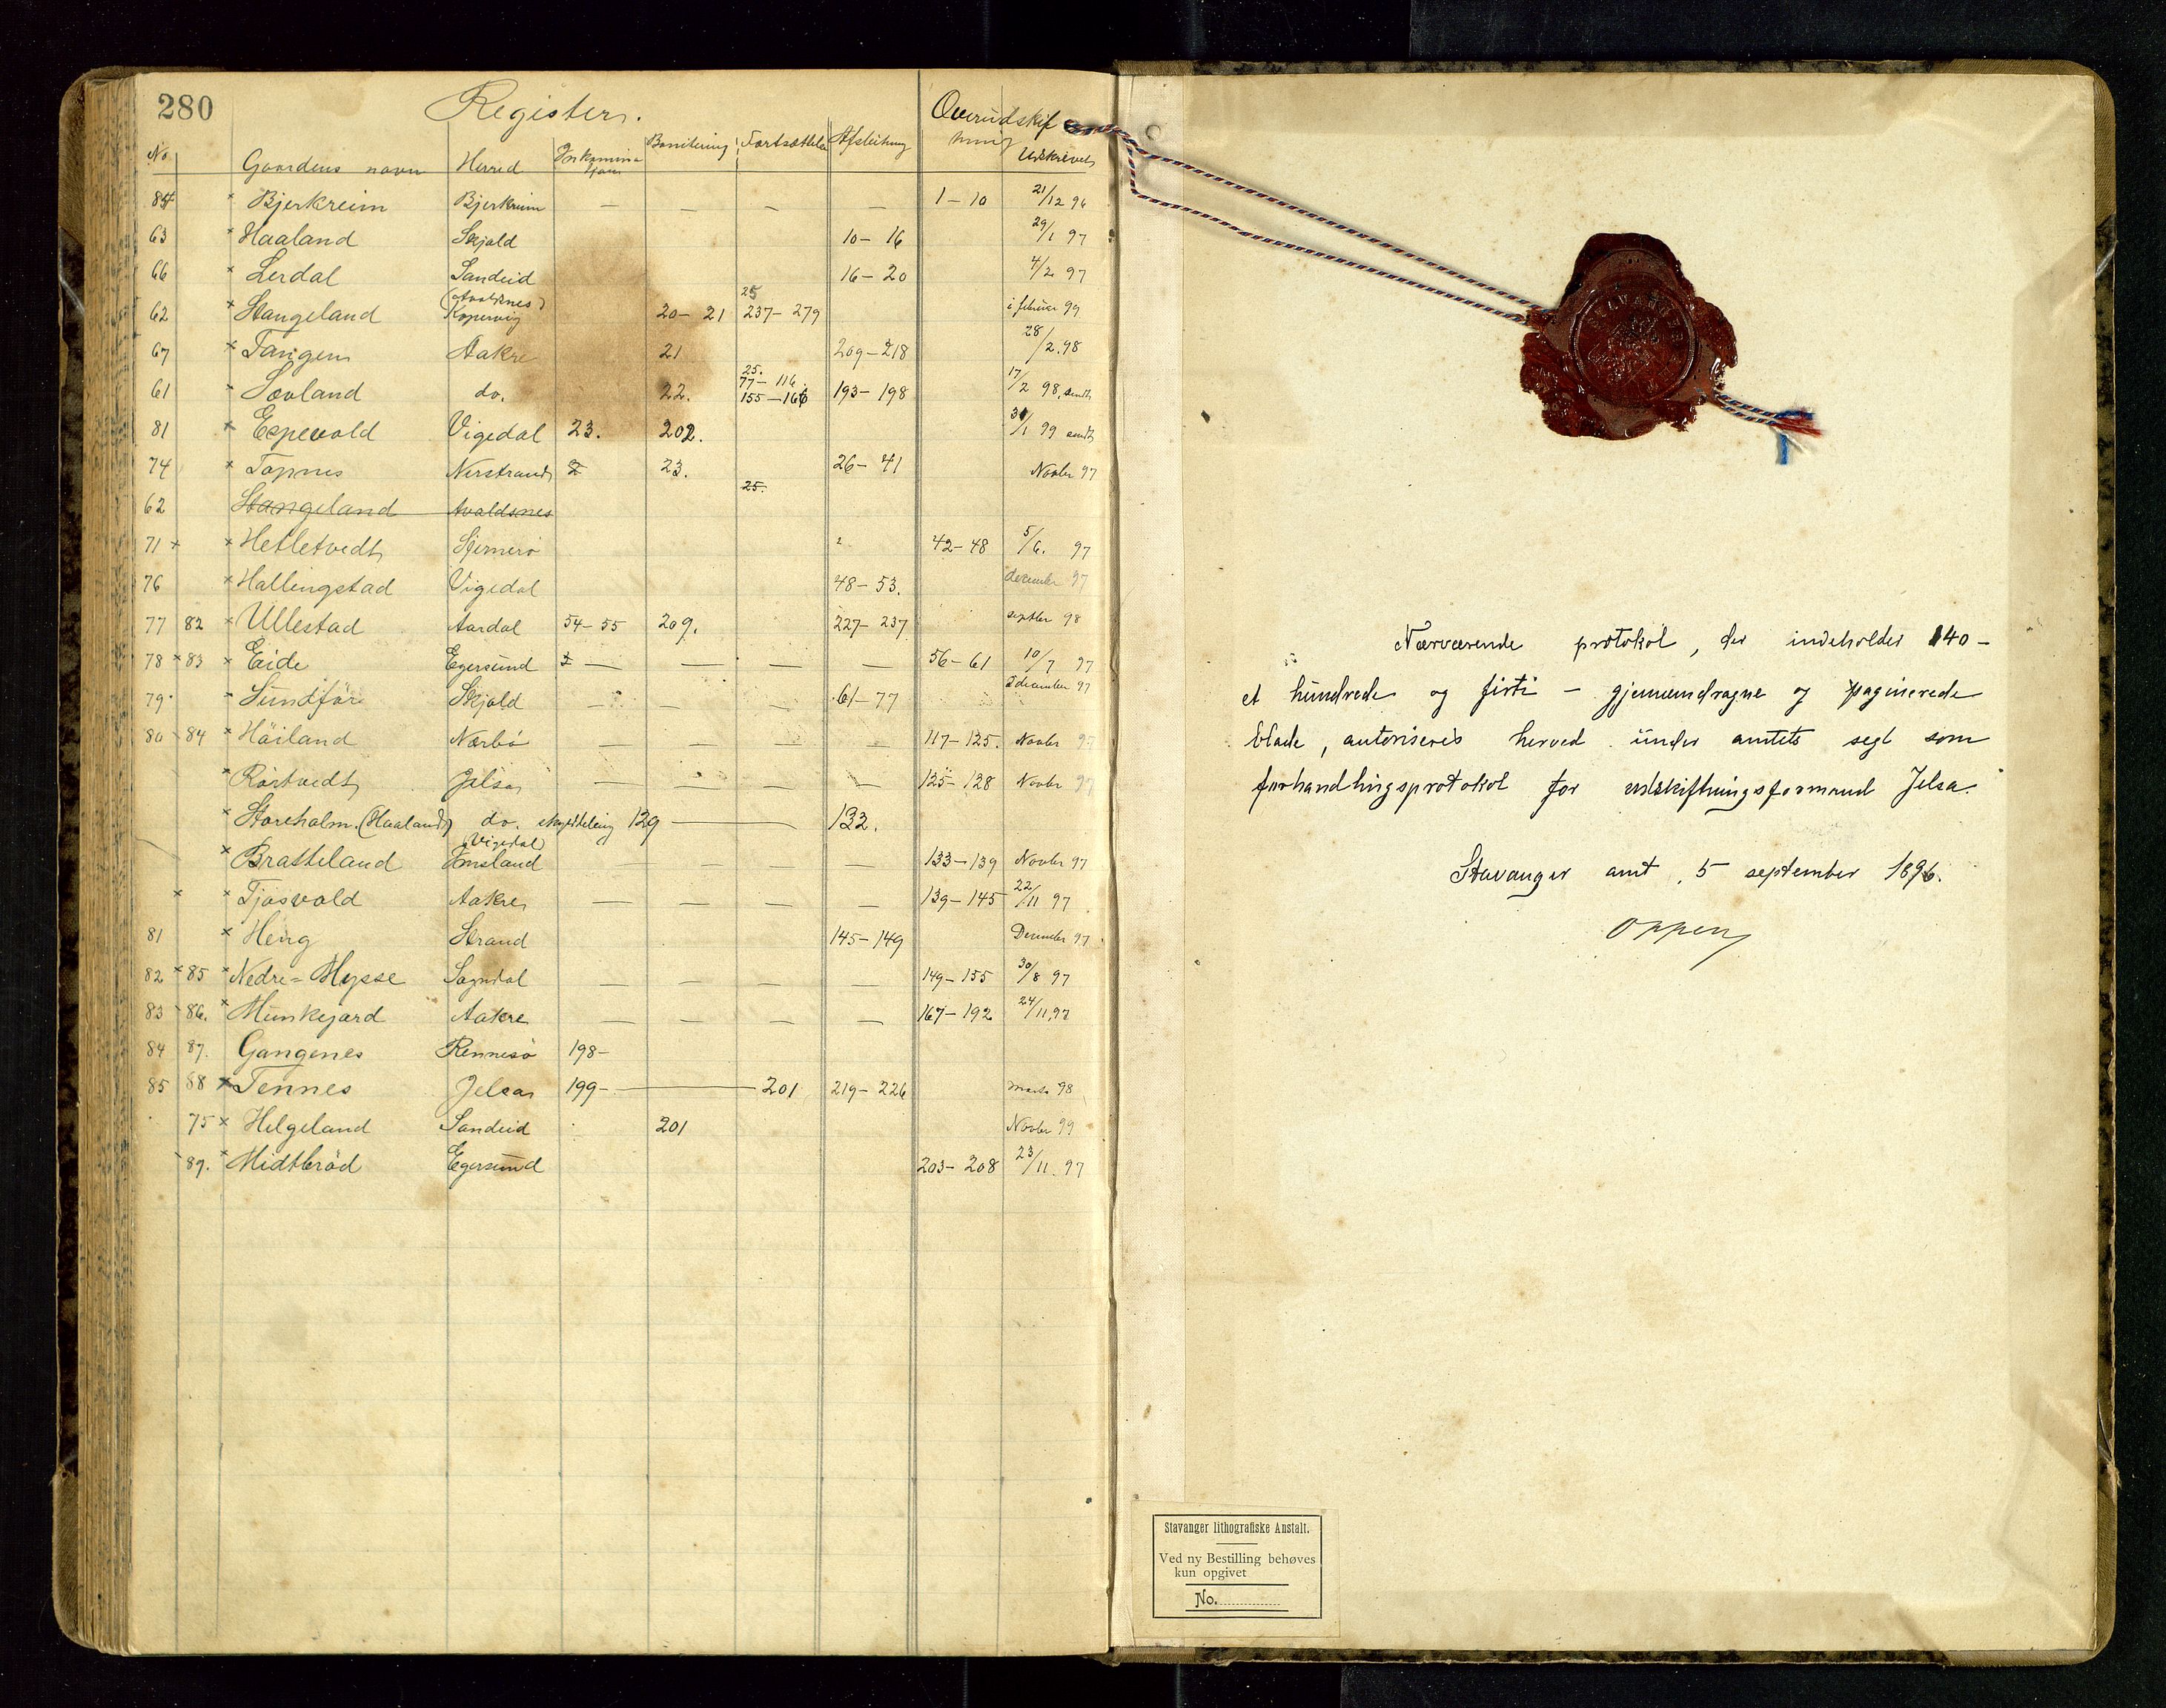 280 Register. Overudskiftning
No Gaardens navn Herred Inkamination Bonitering Fortsættelse Afslutning Udskrevet
84 × Bjerkreim Bjerkreim — — — — 1-10 21/12 96
63 × Haaland Skjold 10-16 29/1 97
66 × Lerdal Sandeid 16-20 4/2 97
62 × Stangeland (Avaldsnes) Kopervig 20-21 25 237-279 i februar 99
67 × Tangen Aakre 21 209-218 28/2.98
61 × Sovland do. 22. 25. 77-116. 155-166 193-198 17/2 98, sendt
81 × Espevold Vigedal 23. 202. 31/1 99 sendt
74 × Topnes Nerstrand 2 23. 26-41 Novbr 97
62 Stangeland Avaldsnes 25.
71 × × Hetletvedt Sjernerö 42-48 5/6. 97
76 × Hallingstad Vigedal 48-53. december 97
77 82 × Ullestad Aardal 54-55 209. 227-237 septbr 98
78 × 83 × Eide Egersund — — — — 56-61 10/7 97
79 × Sundför Skjold — — — 61-77 december 97
80 84 × Höiland Nærbö — — — — 117-125. Novbr 97
× Rörtvedt Jelsa — — — — 125-128 Novbr 97
× Storeholm (Haaland) do. 129 — 132.
× Bratteland (Vigedal) Imsland — — — 133-139 Novbr 97
× × Tjosvold Aakre — — — — 139-145 22/11 97
81 × Heng Strand 145-149 December 97
82 × 85 × Nedre-Mysse Sogndal — — — — 149-155 30/8 97
83 86. × Munkejord Aakre — — — — 167-192 24/11.97
84 87. Gangenes Rennesö 198-
85 88 × Tennes Jelsa 199- — 201 219-226 marts 98
75 × Helgeland Sandeid 201 Novbr 99
89. × Midtbröd Egersund 203-208 23/11.97
Nærværende protokol, der indeholder 140 -
et hundrede og firti - gjennemdragne og paginerede
blade, autoriseres herved under amtets segl som
forhandlingsprotokol for udskiftningsformand Jelsa.
Stavanger amt, 5 september 1896.
Oppen
Stavanger lithografiske Anstalt.
Ved ny Bestilling behøves
kun opgivet
No.